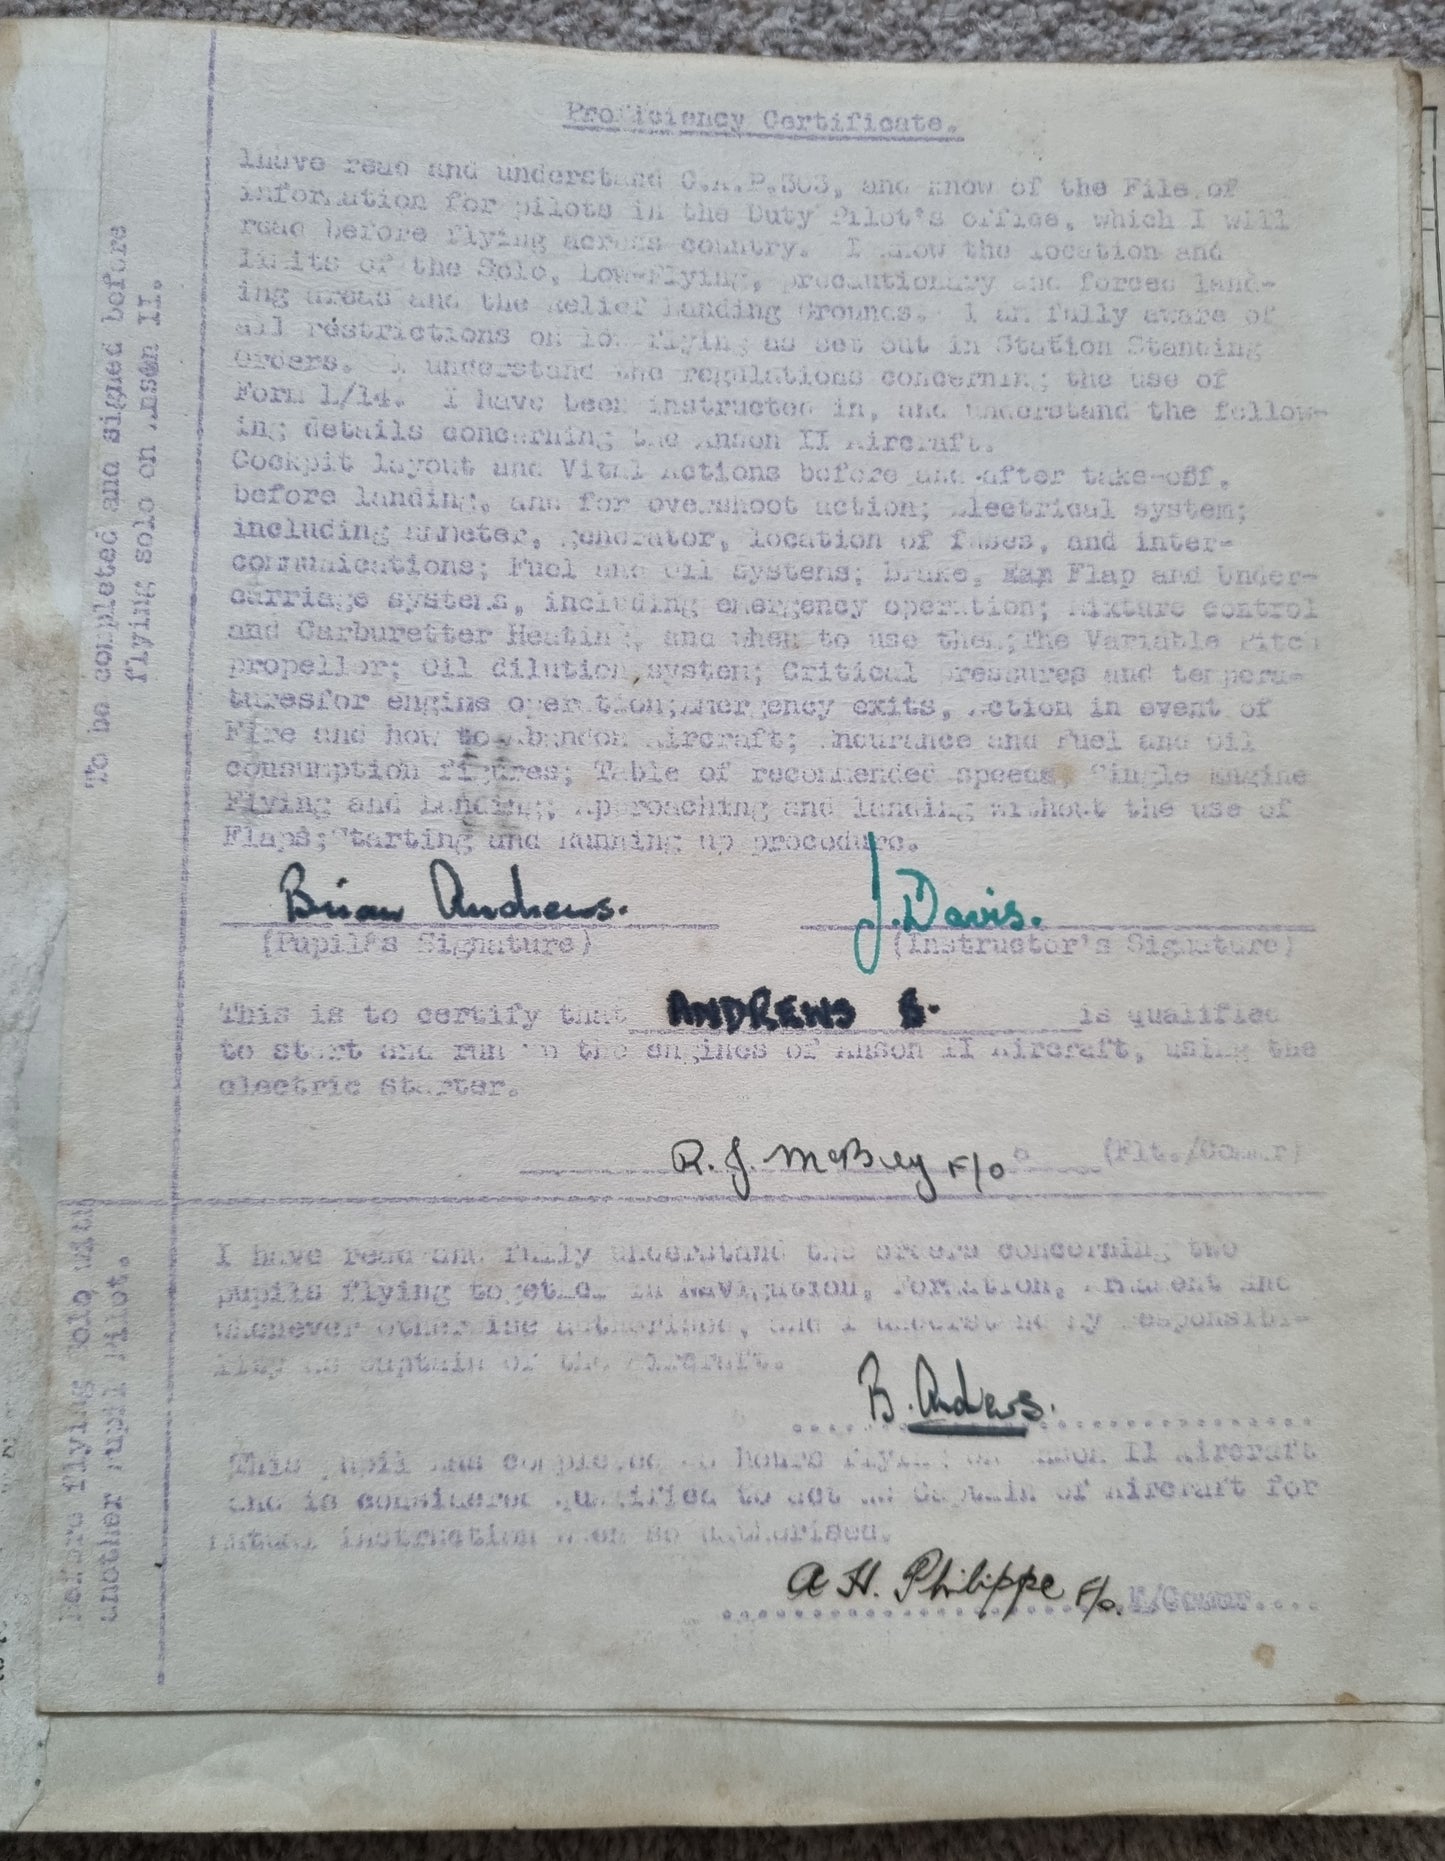 Proficiency Certificate.
To be completed and signed before
flying solo on Anson II.
Ihave read and understand C.A.P.303, and know of the File of
information for pilots in the Duty Pilot's office, which I will
read before flying across country. I know the location and
limits of the Solo, Low-Flying, precautionary and forced land-
ing areas and the Relief Landing Grounds. I am fully aware of
all restrictions on low flying as set out in Station Standing
Orders. I understand the regulations concerning the use of
Form L/14. I have been instructed in, and understand the follow-
ing details concerning the Anson II Aircraft.
Cockpit layout and Vital Actions before and after take-off,
before landing, and for overshoot action; Electrical system;
including ammeter, generator, location of fuses, and inter-
communications; Fuel and Oil systems; Brake, Flap and Under-
carriage systems, including emergency operation; Mixture control
and Carburetter Heating, and when to use them;The Variable Pitch
propellor; Oil dilution system; Critical pressures and tempera-
turesfor engine operation;Emergency exits, Action in event of
Fire and how to Abandon Aircraft; Endurance and Fuel and Oil
consumption figures; Table of recommended speeds, Single Engine
Flying and Landing; Approaching and landing without the use of
Flaps;Starting and Running up procedure.
Brian Andrews. J. Davis.
(Pupil's Signature) (Instructor's Signature)
This is to certify that ANDREWS B. is qualified
to start and run up the engines of Anson II Aircraft, using the
electric starter.
R. J. McBey F/O (Flt./Commr)
Before flying solo with
another Pupil Pilot.
I have read and fully understand the orders concerning two
pupils flying together in Navigation, Formation, Armament and
whenever otherwise authorised, and I understand my responsibi-
lity as captain of the Aircraft.
B. Andrews.
This pupil has completed hours flying on Anson II Aircraft
and is considered qualified to act as Captain of Aircraft for
mutual instruction when so authorised.
A H. Philippe F/O. F/Commr....